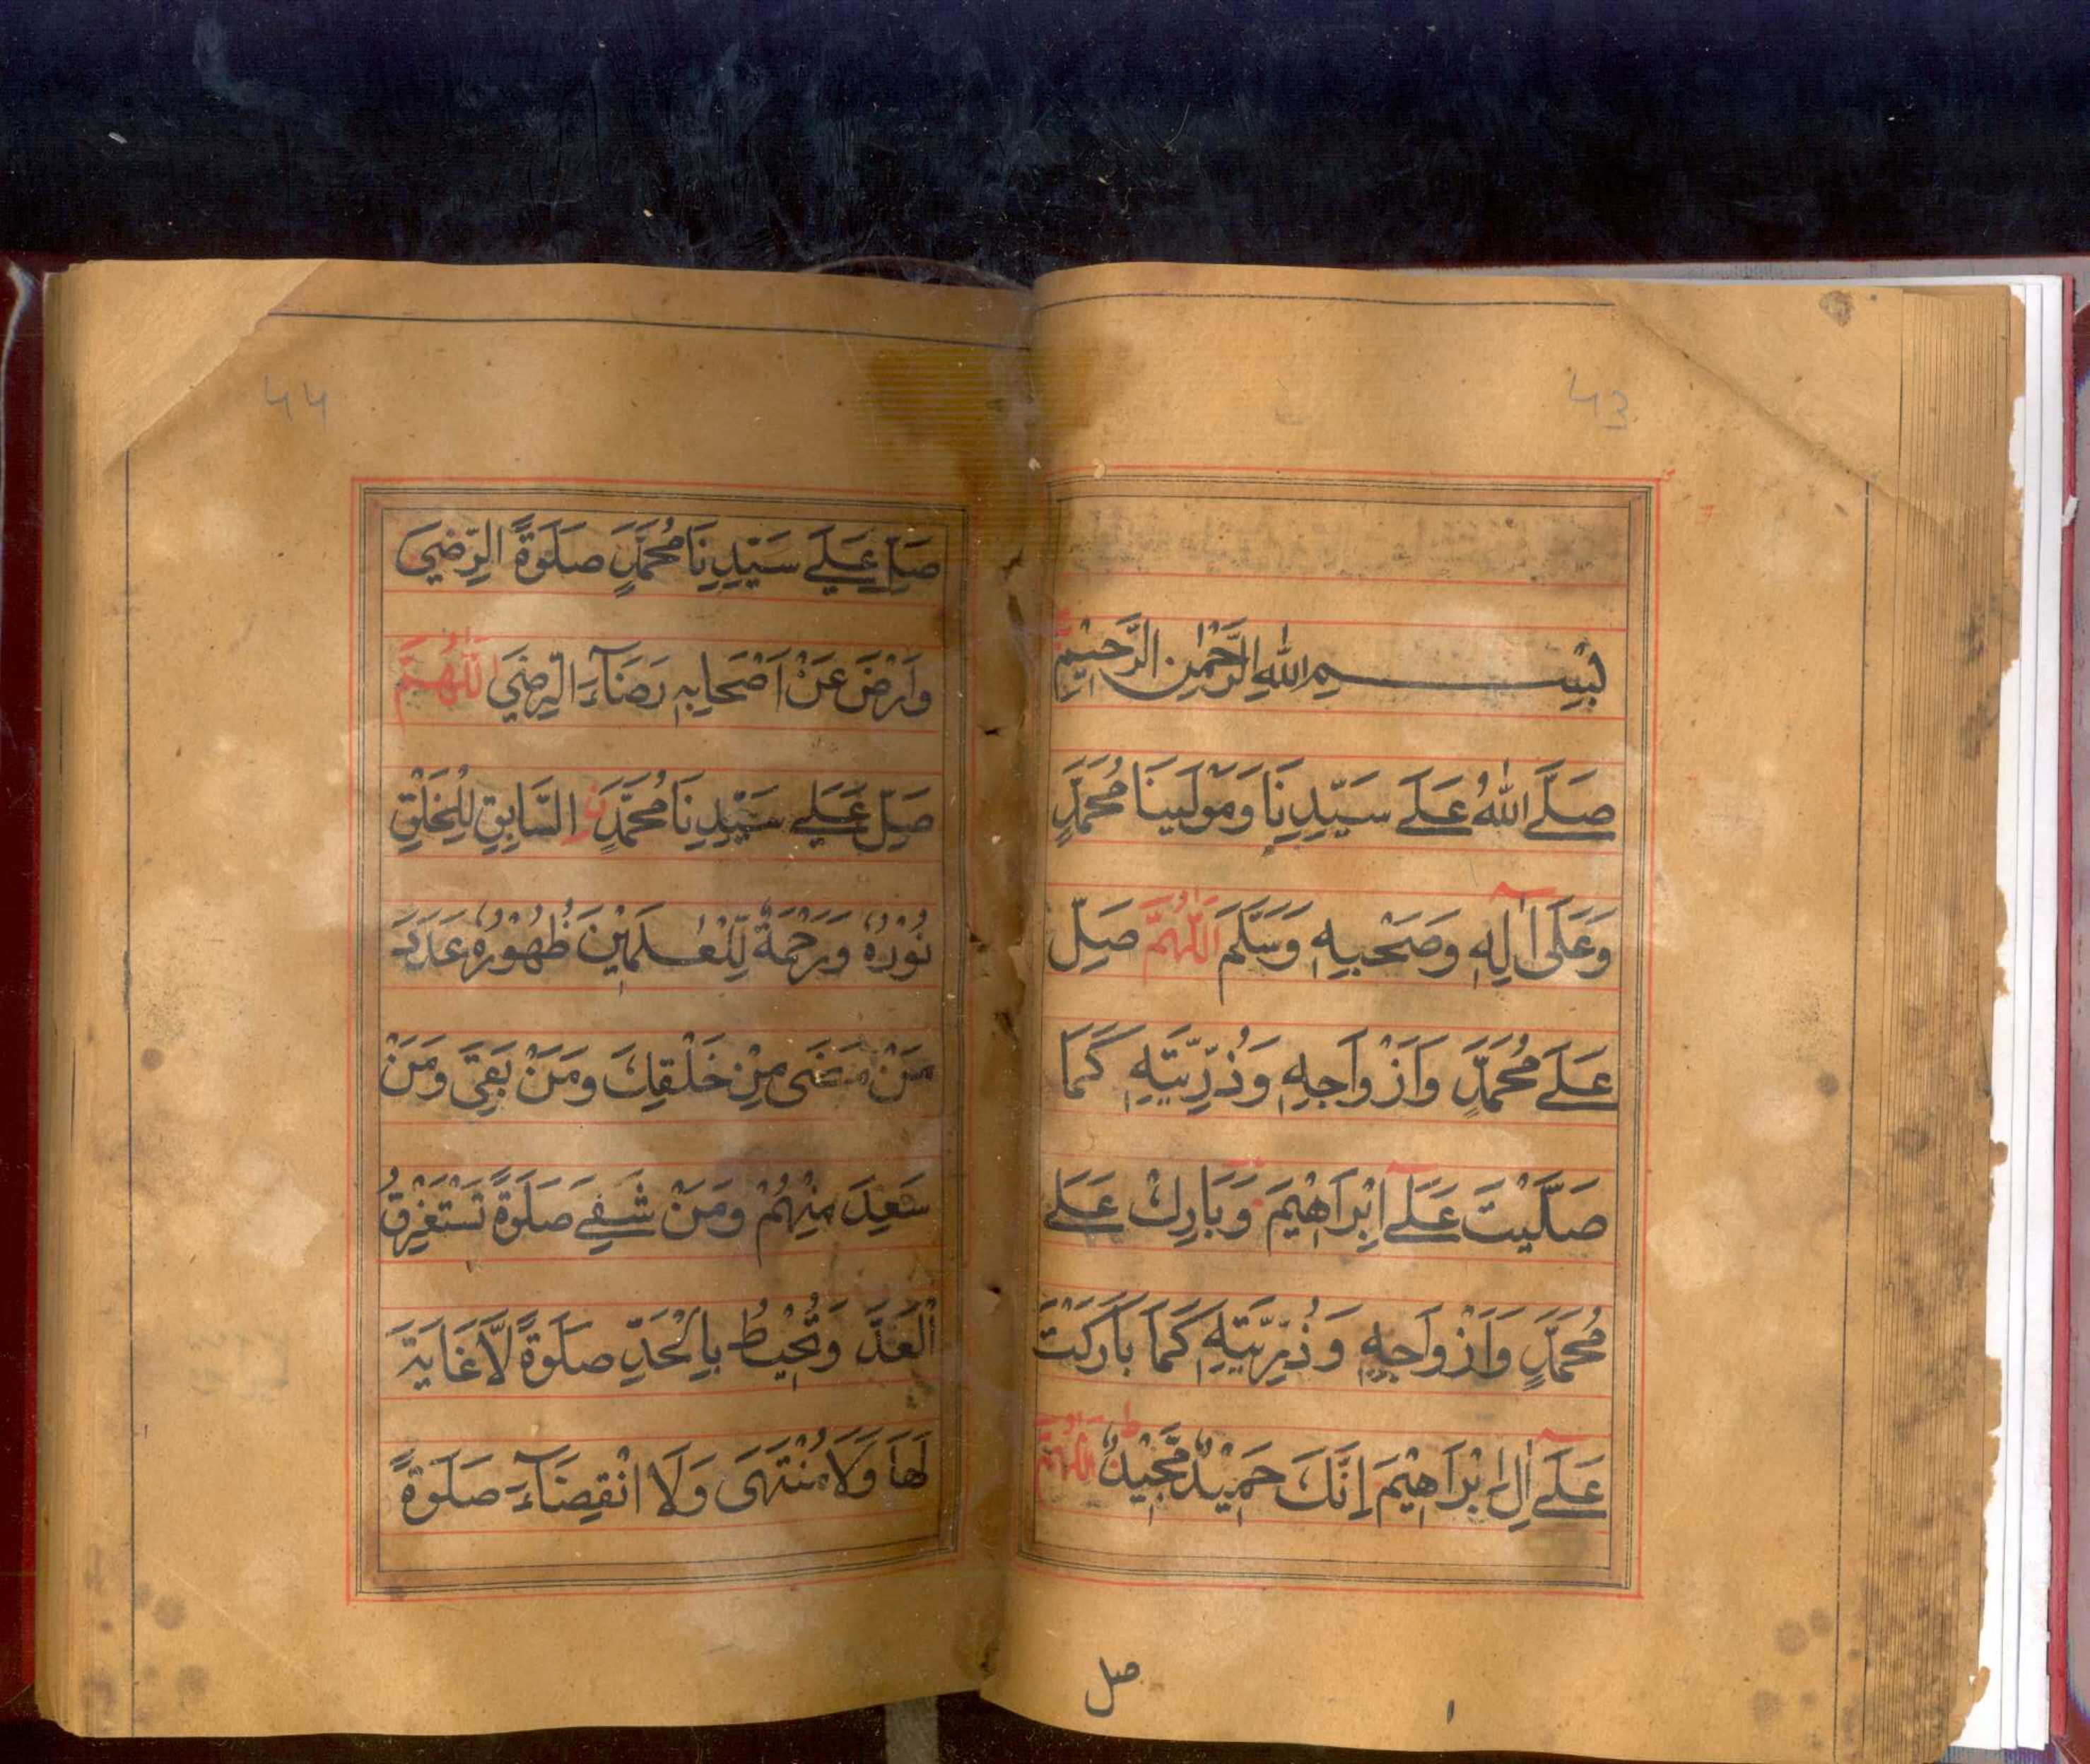 43
بِسْــــــمِ اللّٰهِ الرَّحْمٰنِ الرَّحِيْمِ
صَلَّے اللّٰهُ عَلَے سَيِّدِنَا وَمَوْلٰينَا مُحَمَّدٍ
وَعَلَى اٰلِهٖ وَصَحْبِهٖ وَسَلَّمَ اَللّٰهُمَّ صَلِّ
عَلَے مُحَمَّدٍ وَاَزْوَاجِهٖ وَذُرِّيَّتِهٖ كَمَا
صَلَّيْتَ عَلَے اِبْرَاهِيْمَ وَبَارِكْ عَلَے
مُحَمَّدٍ وَاَزْوَاجِهٖ وَذُرِّيَّتِهٖ كَمَا بَارَكْتَ
عَلَے اٰلِ اِبْرَاهِيْمَ اِنَّكَ حَمِيْدٌ مَّجِيْدٌ ط اَللّٰهُمَّ
صل
١
44
صَلِّ عَلَے سَيِّدِنَا مُحَمَّدٍ صَلٰوةَ الرِّضٰى
وَارْضَ عَنْ اَصْحَابِهٖ رَضَآءَ الرِّضٰى اَللّٰهُمَّ
صَلِّ عَلَے سَيِّدِنَا مُحَمَّدِ نِ السَّابِقِ لِلْخَلْقِ
نُوْرُهٗ وَرَحْمَةٌ لِّلْعٰلَمِيْنَ ظُهُوْرُهٗ عَدَدَ
مَنْ مَضٰى مِنْ خَلْقِكَ وَمَنْ بَقِيَ وَمَنْ
سَعِدَ مِنْهُمْ وَمَنْ شَقِے صَلٰوةً تَسْتَغْرِقُ
الْعَدَّ وَتُحِيْطُ بِالْحَدِّ صَلٰوةً لَّا غَايَةَ
لَهَا وَلَا مُنْتَهٰى وَلَا انْقِضَآءَ صَلٰوةً